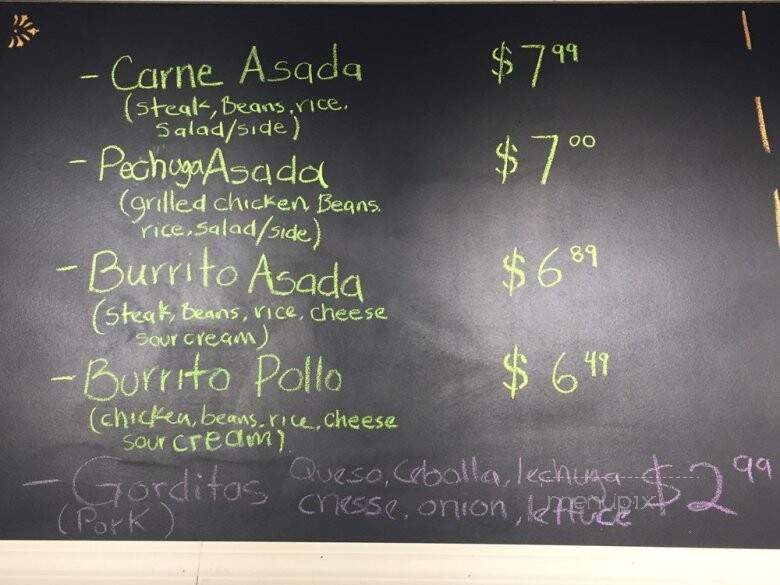 - Carne Asada $7.99
(steak, Beans, rice.
salad/side)
- Pechuga Asada $7.00
(grilled chicken, Beans.
rice, salad/side)
- Burrito Asada $6.89
(Steak, beans, rice, cheese
sour cream)
- Burrito Pollo $6.49
(chicken, beans, rice, cheese
sour cream)
- Gorditas Queso, Cebolla, lechuga $2.99
(Pork) chesse, onion, lettuce
menupix